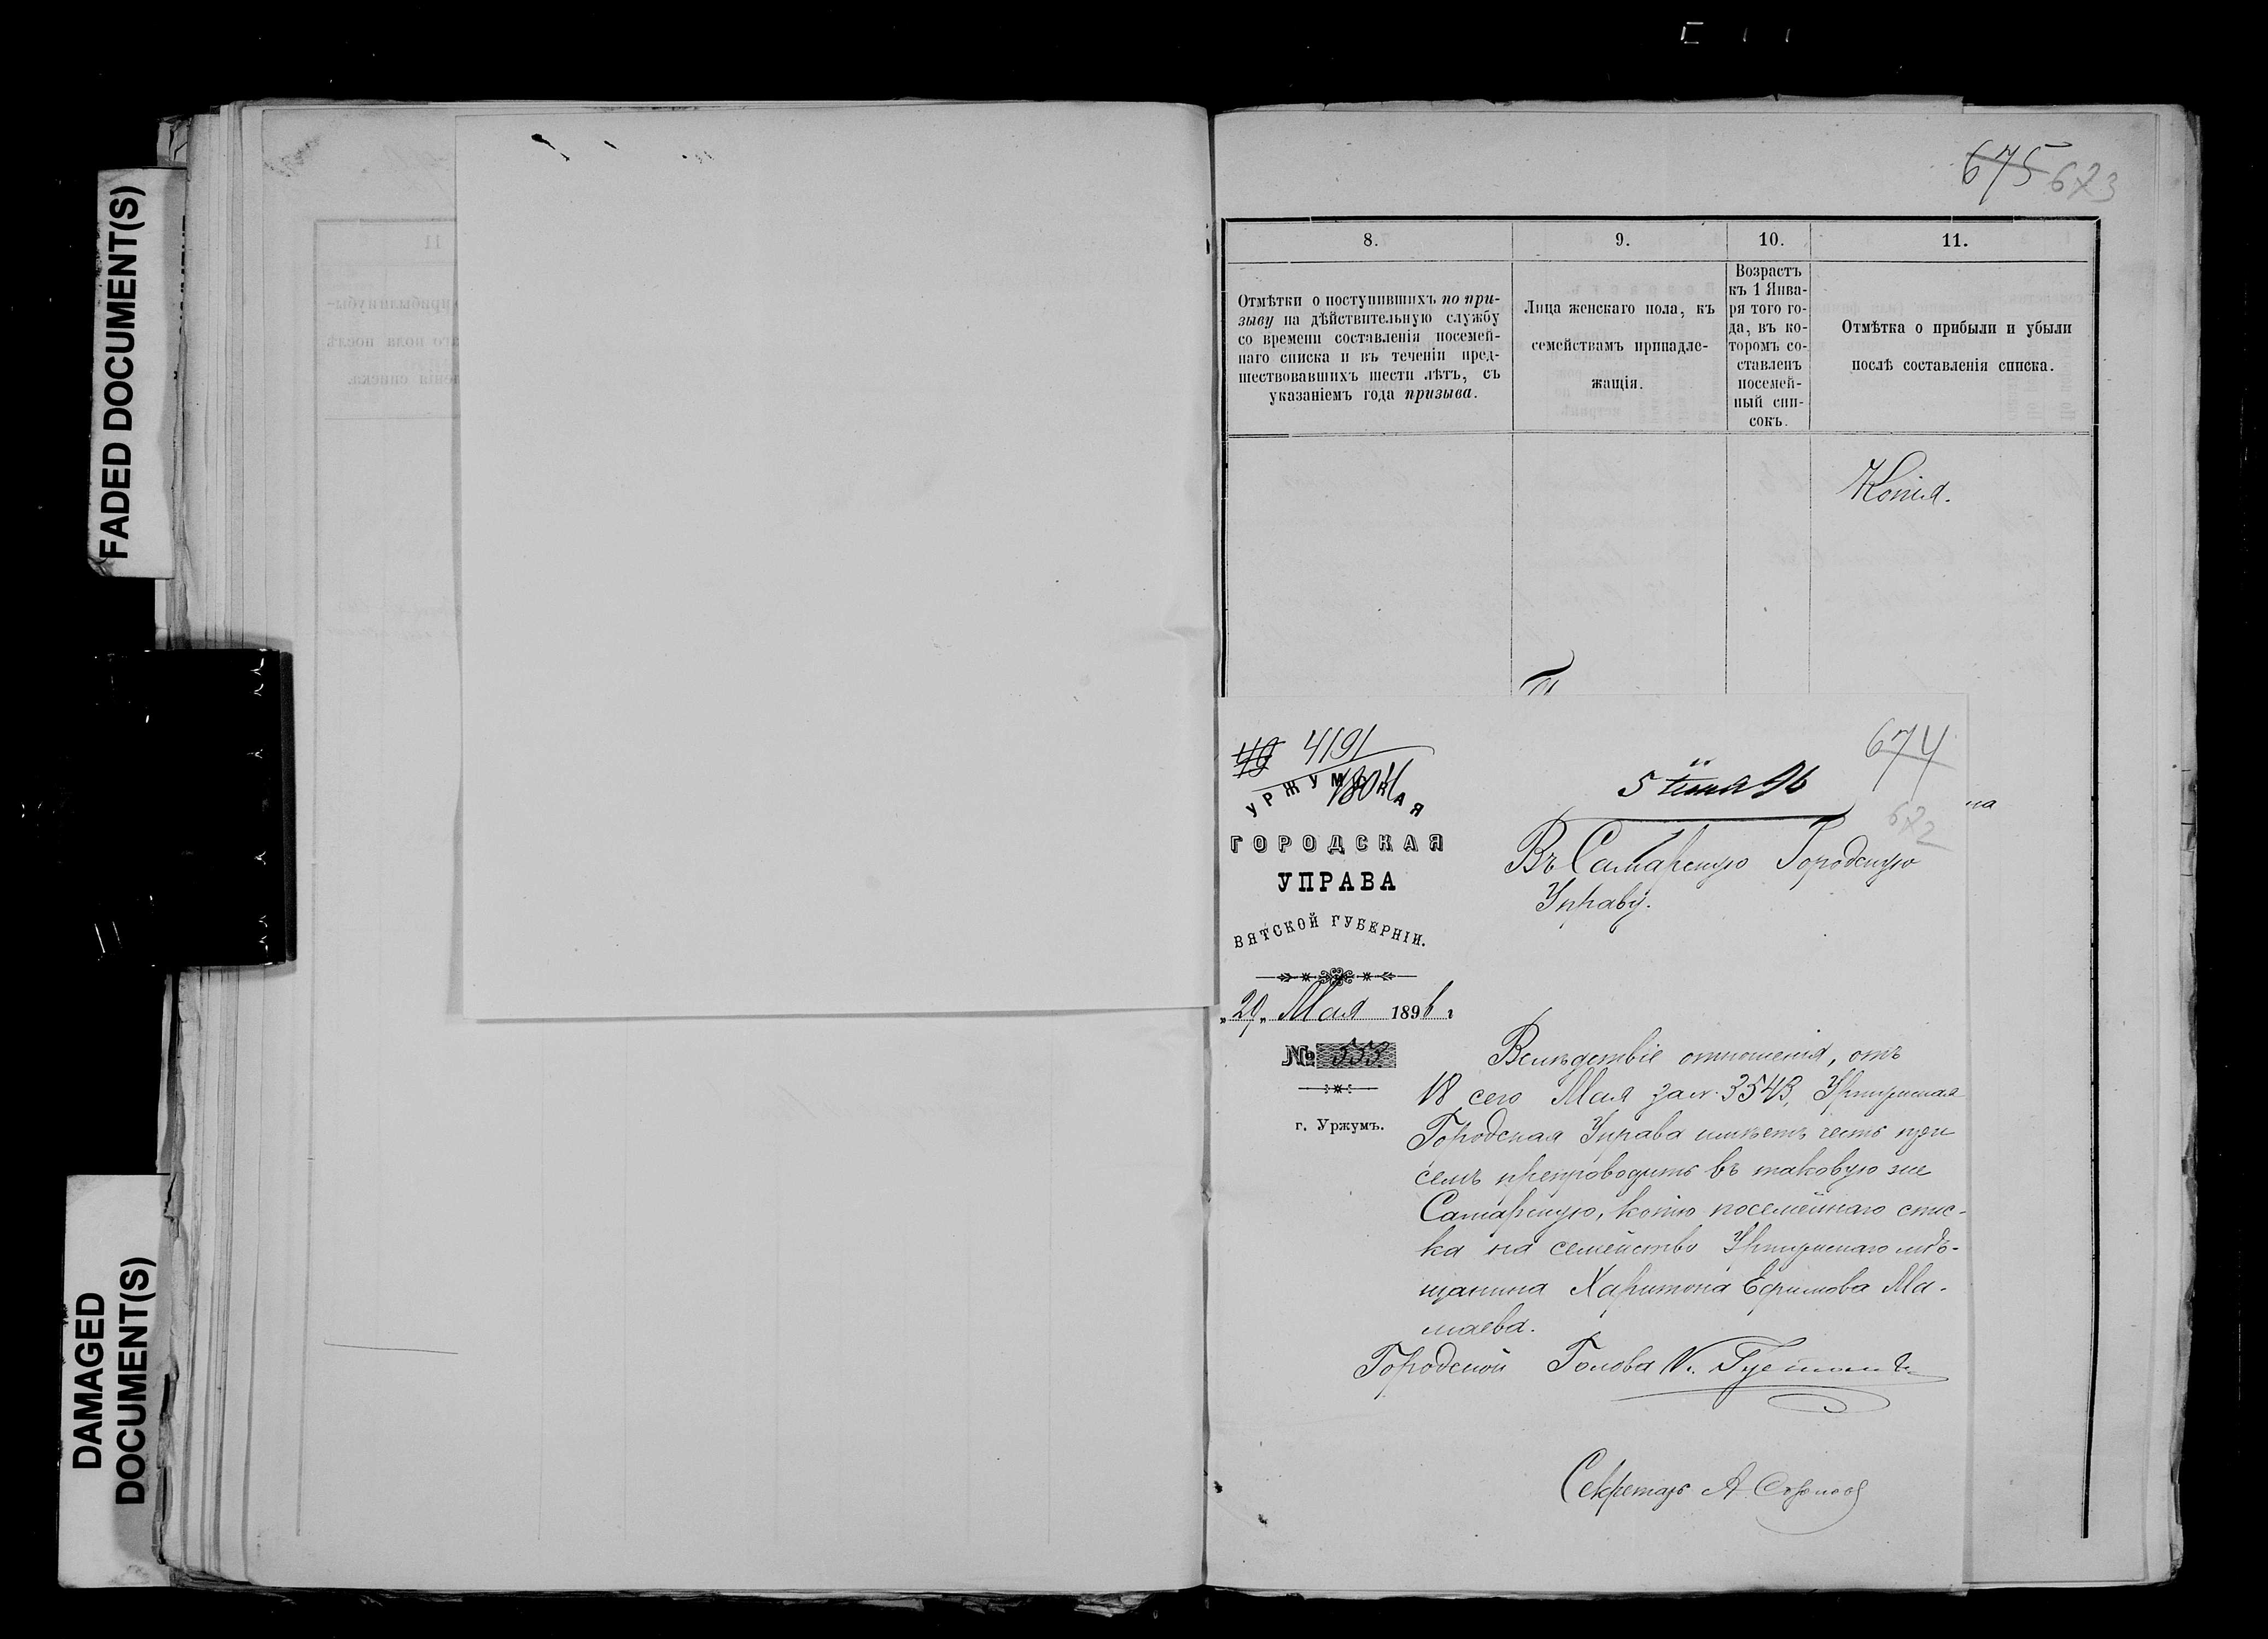 FADED DOCUMENT(S)
DAMAGED
DOCUMENT(S)
675 673
8.
9.
10.
11.
Отмѣтки о поступившихъ по при-
зыву на дѣйствительную службу
со времени составленія посемей-
наго списка и въ теченіи пред-
шествовавшихъ шести лѣтъ, съ
указаніемъ года призыва.
Лица женскаго пола, къ
семействамъ принадле-
жащія.
Возрастъ
къ 1 Янва-
ря того го-
да, въ ко-
торомъ со-
ставленъ
посемей-
ный спи-
сокъ.
Отмѣтка о прибыли и убыли
послѣ составленія списка.
Копія.
4191
674
672
УРЖУМСКАЯ
ГОРОДСКАЯ
УПРАВА
ВЯТСКОЙ ГУБЕРНІИ.
„29„ Мая 1896 г
№ 553
г. Уржумъ.
5 іюня 96
Въ Самарскую Городскую
Управу.
Вслѣдствіе отношенія, отъ
18 сего Мая за № 3543, Уржумская
Городская Управа имѣетъ честь при
семъ препроводить въ таковую же
Самарскую, копію посемейнаго спис-
ка на семейство Уржумскаго мѣ-
щанина Харитона Ефимова Ма-
маева.
Городской Голова
Секретарь А.